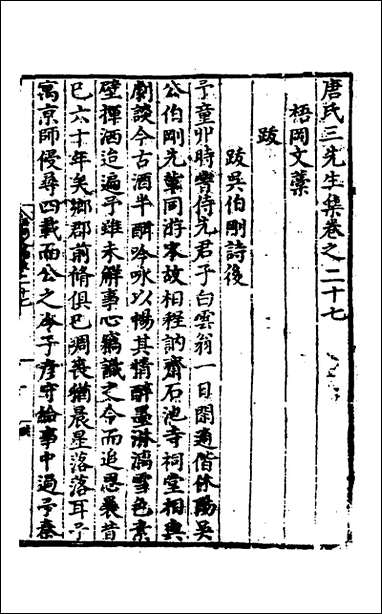 唐氏三先生集卷之二十七
梧岡文藁
跋
跋吳伯剛詩後
予童丱時嘗侍先君子白雲翁一日閑適偕休陽吳
公伯剛先輩同游宋故相程訥齋石池寺祠堂相與
劇談今古酒半酣吟咏以暢其情醉墨淋漓雪色素
壁揮洒迨遍予雖未解事心竊識之今而追思曩昔
巳六十年矣鄉郡前脩俱巳凋喪猶晨星落落耳予
寓京師侵尋四載而公之孝子彦守論事中過予泰